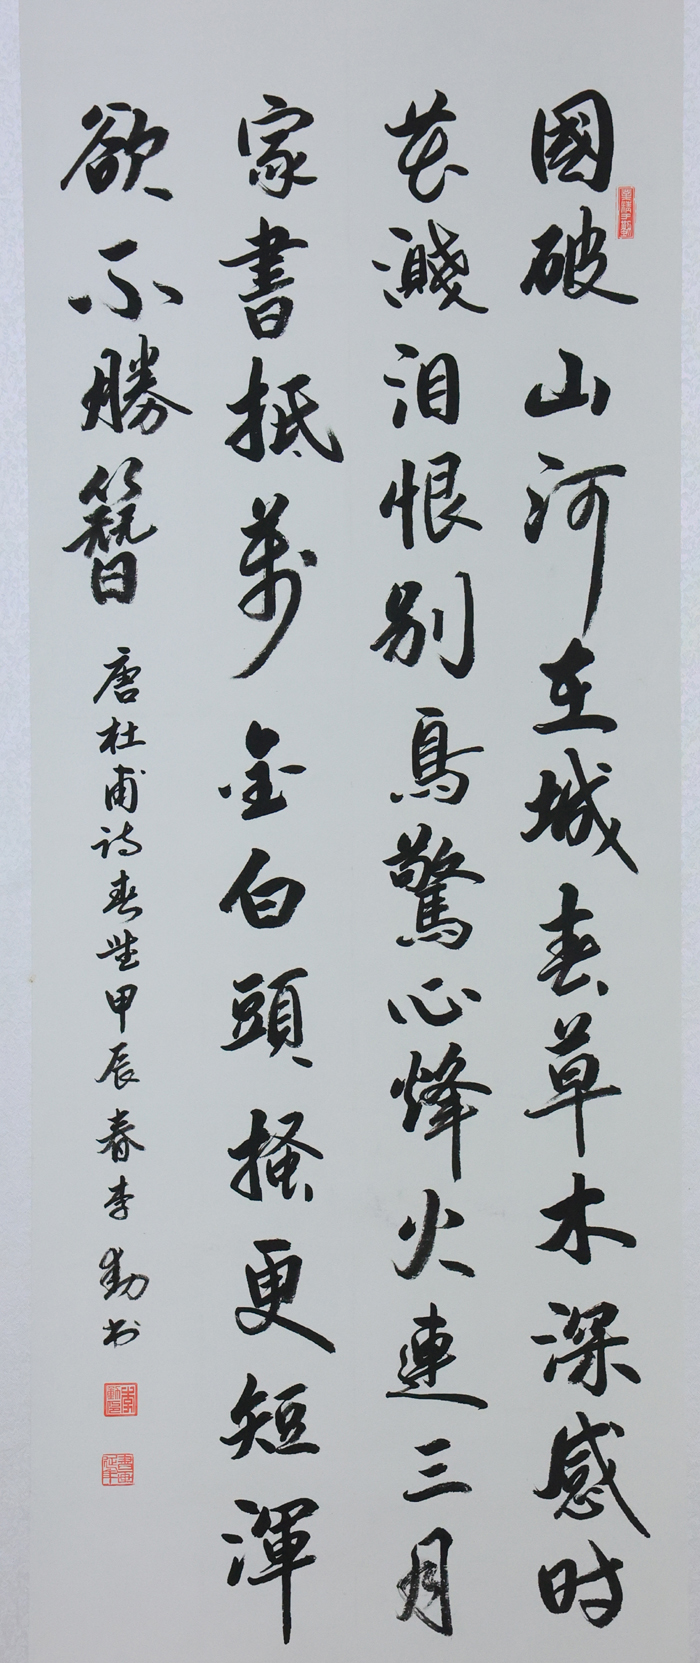 國破山河在城春草木深感時
花濺泪恨別鳥驚心烽火連三月
家書抵萬金白頭搔更短渾
欲不勝簪
唐杜甫詩春望甲辰春李勤書